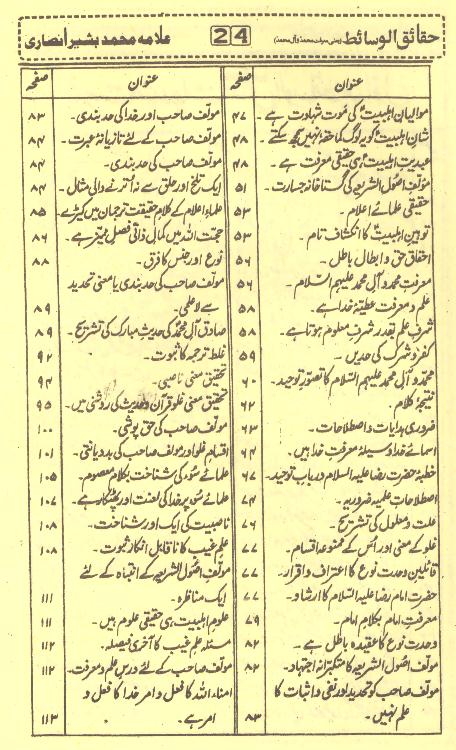 حقائق الوسائط (یعنی معرفت محمدؐ و آل محمدؐ) 24 علامہ محمد بشیر انصاری
عنوان صفحہ
موالیان اہلبیتؑ کی موت شہادت ہے۔ ۴۷
شان اہلبیتؑ کو یہ لوگ کماحقہٗ نہیں سمجھ سکتے ۴۸
عبدیت اہلبیتؑ ہی حقیقی معرفت ہے۔ ۴۸
مؤلف اصول الشریعہ کی گستاخانہ جسارت۔ ۵۱
حقیقی علمائے اعلام۔ ۵۳
توہین اہلبیتؑ کا انکشاف تام۔ ۵۳
احقاق حق و ابطال باطل۔ ۵۶
معرفت محمدؐ و آل محمد علیہم السلام۔ ۵۶
علم و معرفت عطیۂ خدا ہے۔ ۵۸
شرف علم بقدر شرف معلوم ہوتا ہے۔ ۵۸
کفر و شرک کی حدیں۔ ۵۹
محمدؐ و آل محمد علیہم السلام کا تصور توحید۔ ۶۰
نتیجۂ کلام۔ ۶۲
ضروری ہدایات و اصطلاحات۔ ۶۳
اسمائے خدا وسیلۂ معرفت خدا ہیں۔ ۶۴
خطبۂ حضرت رضا علیہ السلام درباب توحید۔ ۶۷
اصطلاحات علمیہ ضروریہ۔ ۷۴
علت و معلول کی تشریح۔ ۷۶
غلو کے معنی اور اس کے ممنوعہ اقسام۔ ۷۷
قائلین وحدت نوع کا اعتراف و اقرار۔ ۷۷
حضرت امام رضا علیہ السلام کا ارشاد۔ ۷۷
معرفت امام بکلام امام۔ ۷۹
وحدت نوع کا عقیدہ باطل ہے۔ ۸۲
مؤلف اصول الشریعہ کا متکبرانہ اجتہاد۔ ۸۲
مؤلف صاحب کو تحدید اور نفی و اثبات کا
علم نہیں۔ ۸۳
عنوان صفحہ
مؤلف صاحب اور خدا کی حد بندی۔ ۸۳
مؤلف صاحب کے لئے تازیانۂ عبرت۔ ۸۴
مؤلف صاحب کی حد بندی۔ ۸۴
ایک تلخ اور حلق سے نہ اترنے والی مثال۔ ۸۴
علماء اعلام کے کلام حقیقت ترجمان میں کیڑے۔ ۸۵
حجت اللہ میں کمال ذاتی فصل ممیز ہے۔ ۸۶
نوع اور جنس کا فرق۔ ۸۸
مؤلف صاحب کی حد بندی یا معنی تحدید
سے لاعلمی۔ ۸۹
صادق آل محمدؐ کی حدیث مبارک کی تشریح۔ ۸۹
غلط ترجمہ کا ثبوت۔ ۹۲
تحقیق معنی ناصبی۔ ۹۴
تحقیق معنی غلو قرآن و حدیث کی روشنی میں۔ ۹۵
مؤلف صاحب کی حق پوشی۔ ۱۰۰
اقسام غلو اور مؤلف صاحب کی بددیانتی۔ ۱۰۱
علمائے سوء کی شناخت بکلام معصوم۔ ۱۰۵
علمائے سوء پر خدا کی لعنت اور پھٹکار ہے۔ ۱۰۷
ناصبیت کی ایک اور شناخت۔ ۱۰۸
علم غیب کا ناقابل انکار ثبوت۔ ۱۰۸
مؤلف اصول الشریعہ کے انتباہ کے لئے
ایک مناظرہ۔ ۱۱۱
علوم اہلبیتؑ ہی حقیقی علوم ہیں۔ ۱۱۱
مسئلہ علم غیب کا آخری فیصلہ۔ ۱۱۲
مؤلف صاحب کے لئے درس علم و معرفت۔ ۱۱۲
امناء اللہ کا فعل و امر خدا کا فعل و
امر ہے۔ ۱۱۳